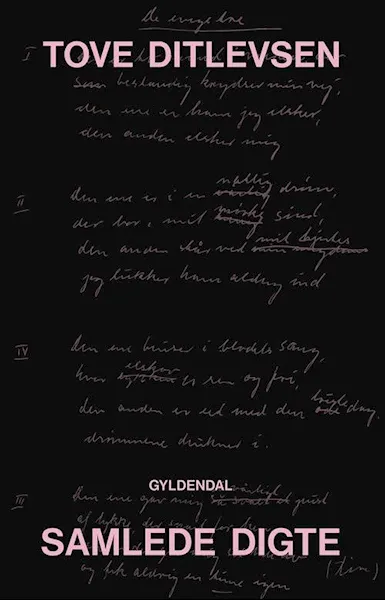 De evige tre
I
TOVE DITLEVSEN
som bestandig krydser min vej,
den ene er ham jeg elsker,
den anden elsker mig
II
natlig
Den ene er i en drøm,
mørke
der bor i mit sind,
mit hjertes
den anden står ved
jeg lukker ham aldrig ind
IV
Den ene bruser i blodets sang,
elskov
hvor er ren og fri,
den anden er eet med den dag
drømmene drukner i.
GYLDENDAL
III
Den ene gav mig
SAMLEDE DIGTE
og fik aldrig en time igen